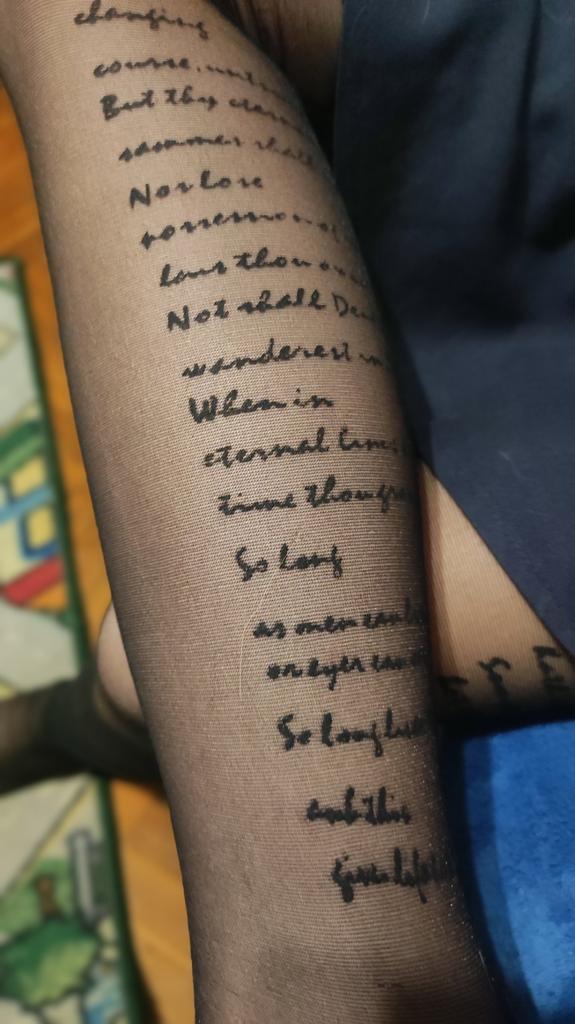 changing
course, unt
But thy etern
summer shall
Nor lose
possession of
lour thou o
Not shall De
wanderest in
When in
eternal lines
time thougr
So long
as men can b
or eyes can
So long li
and this
gives life